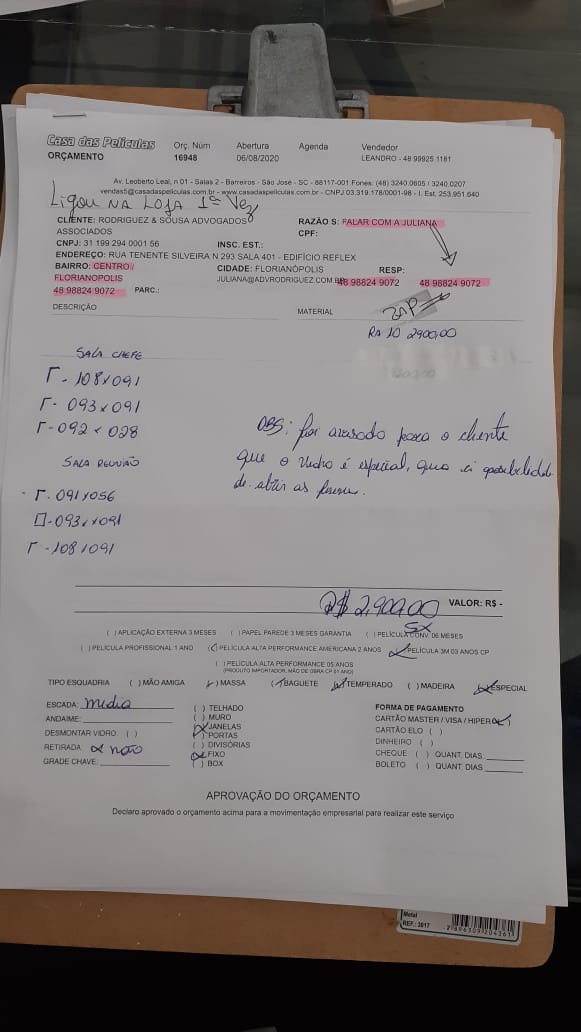 Casa das Películas
ORÇAMENTO
Orç. Núm
16948
Abertura
06/08/2020
Agenda
Vendedor
LEANDRO - 48 99925 1181
Av. Leoberto Leal, n 01 - Salas 2 - Barreiros - São José - SC - 88117-001 Fones: (48) 3240.0605 / 3240.0207
vendas5@casadaspeliculas.com.br - www.casadaspeliculas.com.br - CNPJ 03.319.178/0001-98 - I. Est. 253.951.640
LIGOU NA LOJA 1ª Vez
CLIENTE: RODRIGUEZ & SOUSA ADVOGADOS
ASSOCIADOS
RAZÃO S: FALAR COM A JULIANA
CPF:
CNPJ: 31 199 294 0001 56
INSC. EST.:
ENDEREÇO: RUA TENENTE SILVEIRA N 293 SALA 401 - EDIFÍCIO REFLEX
BAIRRO: CENTRO /
FLORIANOPOLIS
CIDADE: FLORIANÓPOLIS
RESP:
JULIANA@ADVRODRIGUEZ.COM.BR
48 98824 9072
48 98824 9072
48 98824 9072
PARC.:
ZAP
DESCRIÇÃO
MATERIAL
RA 10 2900,00
SALA CHEFE
Γ - 108 x 091
Γ - 093 x 091
Γ - 092 x 028
SALA REUNIÃO
Γ - 091 x 056
093 x 091
Γ - 108 x 091
OBS: foi avisado para o cliente
que o vidro é especial, que a possibilidade
de abrir as
R$ 2,900,00
VALOR: R$ -
5X
( ) APLICAÇÃO EXTERNA 3 MESES ( ) PAPEL PAREDE 3 MESES GARANTIA ( ) PELÍCULA CONV. 06 MESES
( ) PELÍCULA PROFISSIONAL 1 ANO ( ) PELÍCULA ALTA PERFORMANCE AMERICANA 2 ANOS PELÍCULA 3M 03 ANOS CP
( ) PELÍCULA ALTA PERFORMANCE 05 ANOS
(PRODUTO IMPORTADOR, MÃO DE OBRA CP 01 ANO)
TIPO ESQUADRIA ( ) MÃO AMIGA ( ) MASSA ( ) BAGUETE TEMPERADO ( ) MADEIRA ESPECIAL
ESCADA: media
ANDAIME:
DESMONTAR VIDRO: ( )
RETIRADA: não
GRADE CHAVE:
( ) TELHADO
( ) MURO
JANELAS
PORTAS
( ) DIVISÓRIAS
FIXO
( ) BOX
FORMA DE PAGAMENTO
CARTÃO MASTER / VISA / HIPER (x)
CARTÃO ELO ( )
DINHEIRO ( )
CHEQUE ( ) QUANT. DIAS:
BOLETO ( ) QUANT. DIAS
APROVAÇÃO DO ORÇAMENTO
Declaro aprovado o orçamento acima para a movimentação empresarial para realizar este serviço
Metal
REF.: 3017
7 896309 204361